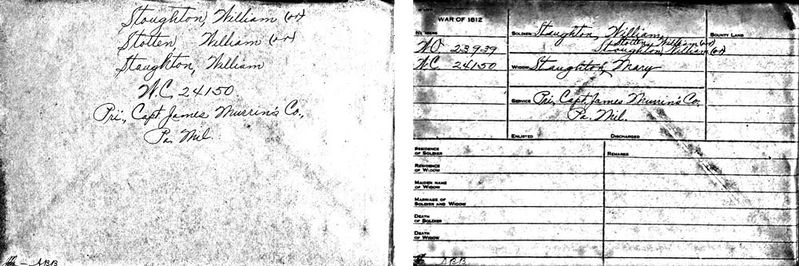 Stoughton, William (or)
Stotten, William (or)
Staughton, William
W.C. 24150
Pri., Capt James Murrin's Co.,
Pa. Mil.
WAR OF 1812
SOLDIER Staughton, William,
Stotten, William (or)
Stoughton, William (or)
BOUNTY LAND
W.O. 23939
W.C. 24150
WIDOW Staughton, Mary
SERVICE Pri., Capt James Murrin's Co.,
Pa. Mil.
ENLISTED DISCHARGED
RESIDENCE OF SOLDIER
REMARKS
RESIDENCE OF WIDOW
MAIDEN NAME OF WIDOW
MARRIAGE OF SOLDIER AND WIDOW
DEATH OF SOLDIER
DEATH OF WIDOW